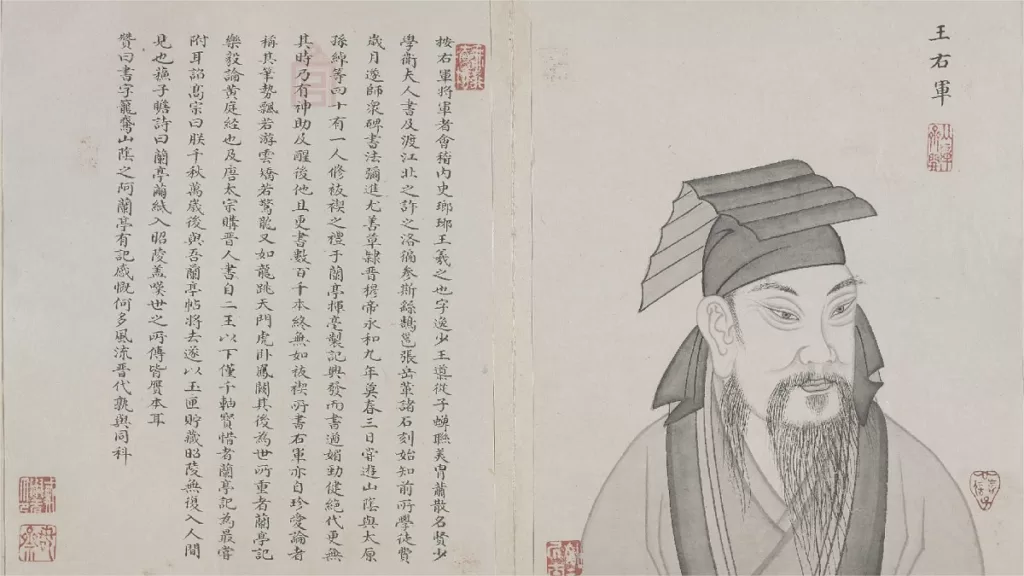 王右軍
按右軍將軍者會稽内史瑯琊王羲之也字逸少王導從子蟬聯美胄蕭散名賢少
學衛夫人書及渡江北之許之洛徧參斯繇鵠邕張岳華諸石刻始知前所學徒費
歲月遂師衆碑書法彌進尤善草隷晉穆帝永和九年莫春三日甞遊山陰與太原
孫綽等四十有一人修祓禊之禮于蘭亭揮毫製記興發而書遒媚勁健絶代更無
其時乃有神助及醒後他且更書數百千本終無如祓禊所書右軍亦自珍愛論者
稱其筆勢飄若游雲矯若驚龍又如龍跳天門虎卧鳳闕其後為世所重者蘭亭記
樂毅論黄庭經也及唐太宗購晉人書自二王以下僅千軸寳惜者蘭亭記為最甞
附耳語髙宗曰朕千秋萬歲後與吾蘭亭帖將去遂以玉匣貯藏昭陵無復入人間
見也蘓子瞻詩曰蘭亭繭紙入昭陵蓋嘆世之所傳皆贋本耳
贊曰書字籠鵞山陰之阿蘭亭有記感慨何多風流晉代孰與同科